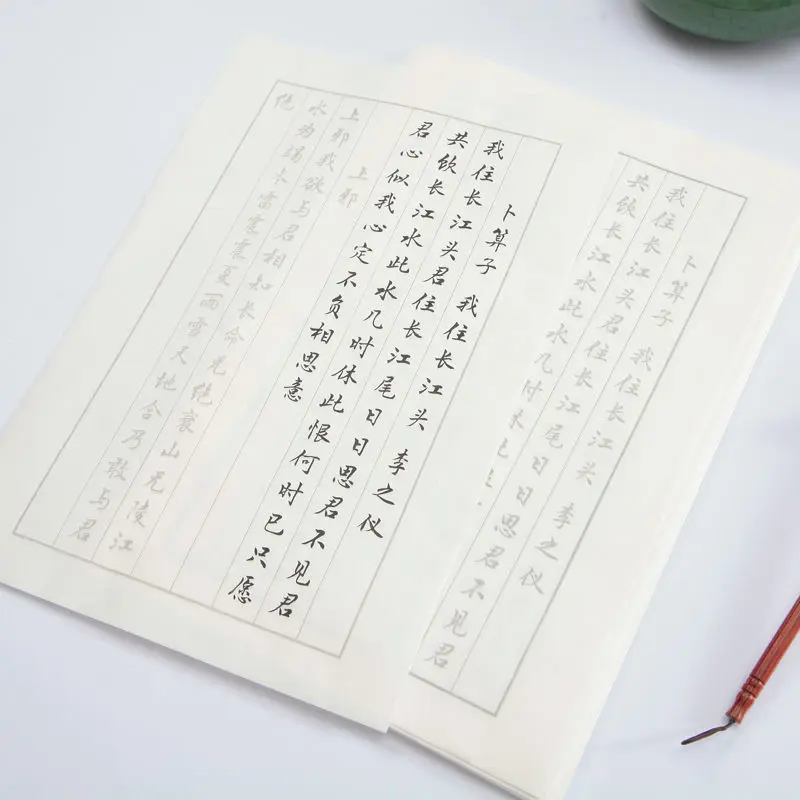 卜算子 我住长江头 李之仪
我住长江头君住长江尾日日思君不见君
共饮长江水此水几时休此恨何时已只愿
君心似我心定不负相思意
上邪
上邪我欲与君相知长命无绝衰山无陵江
水为竭冬雷震震夏雨雪天地合乃敢与君
绝
卜算子 我住长江头 李之仪
我住长江头君住长江尾日日思君不见君
共饮长江水此水几时休